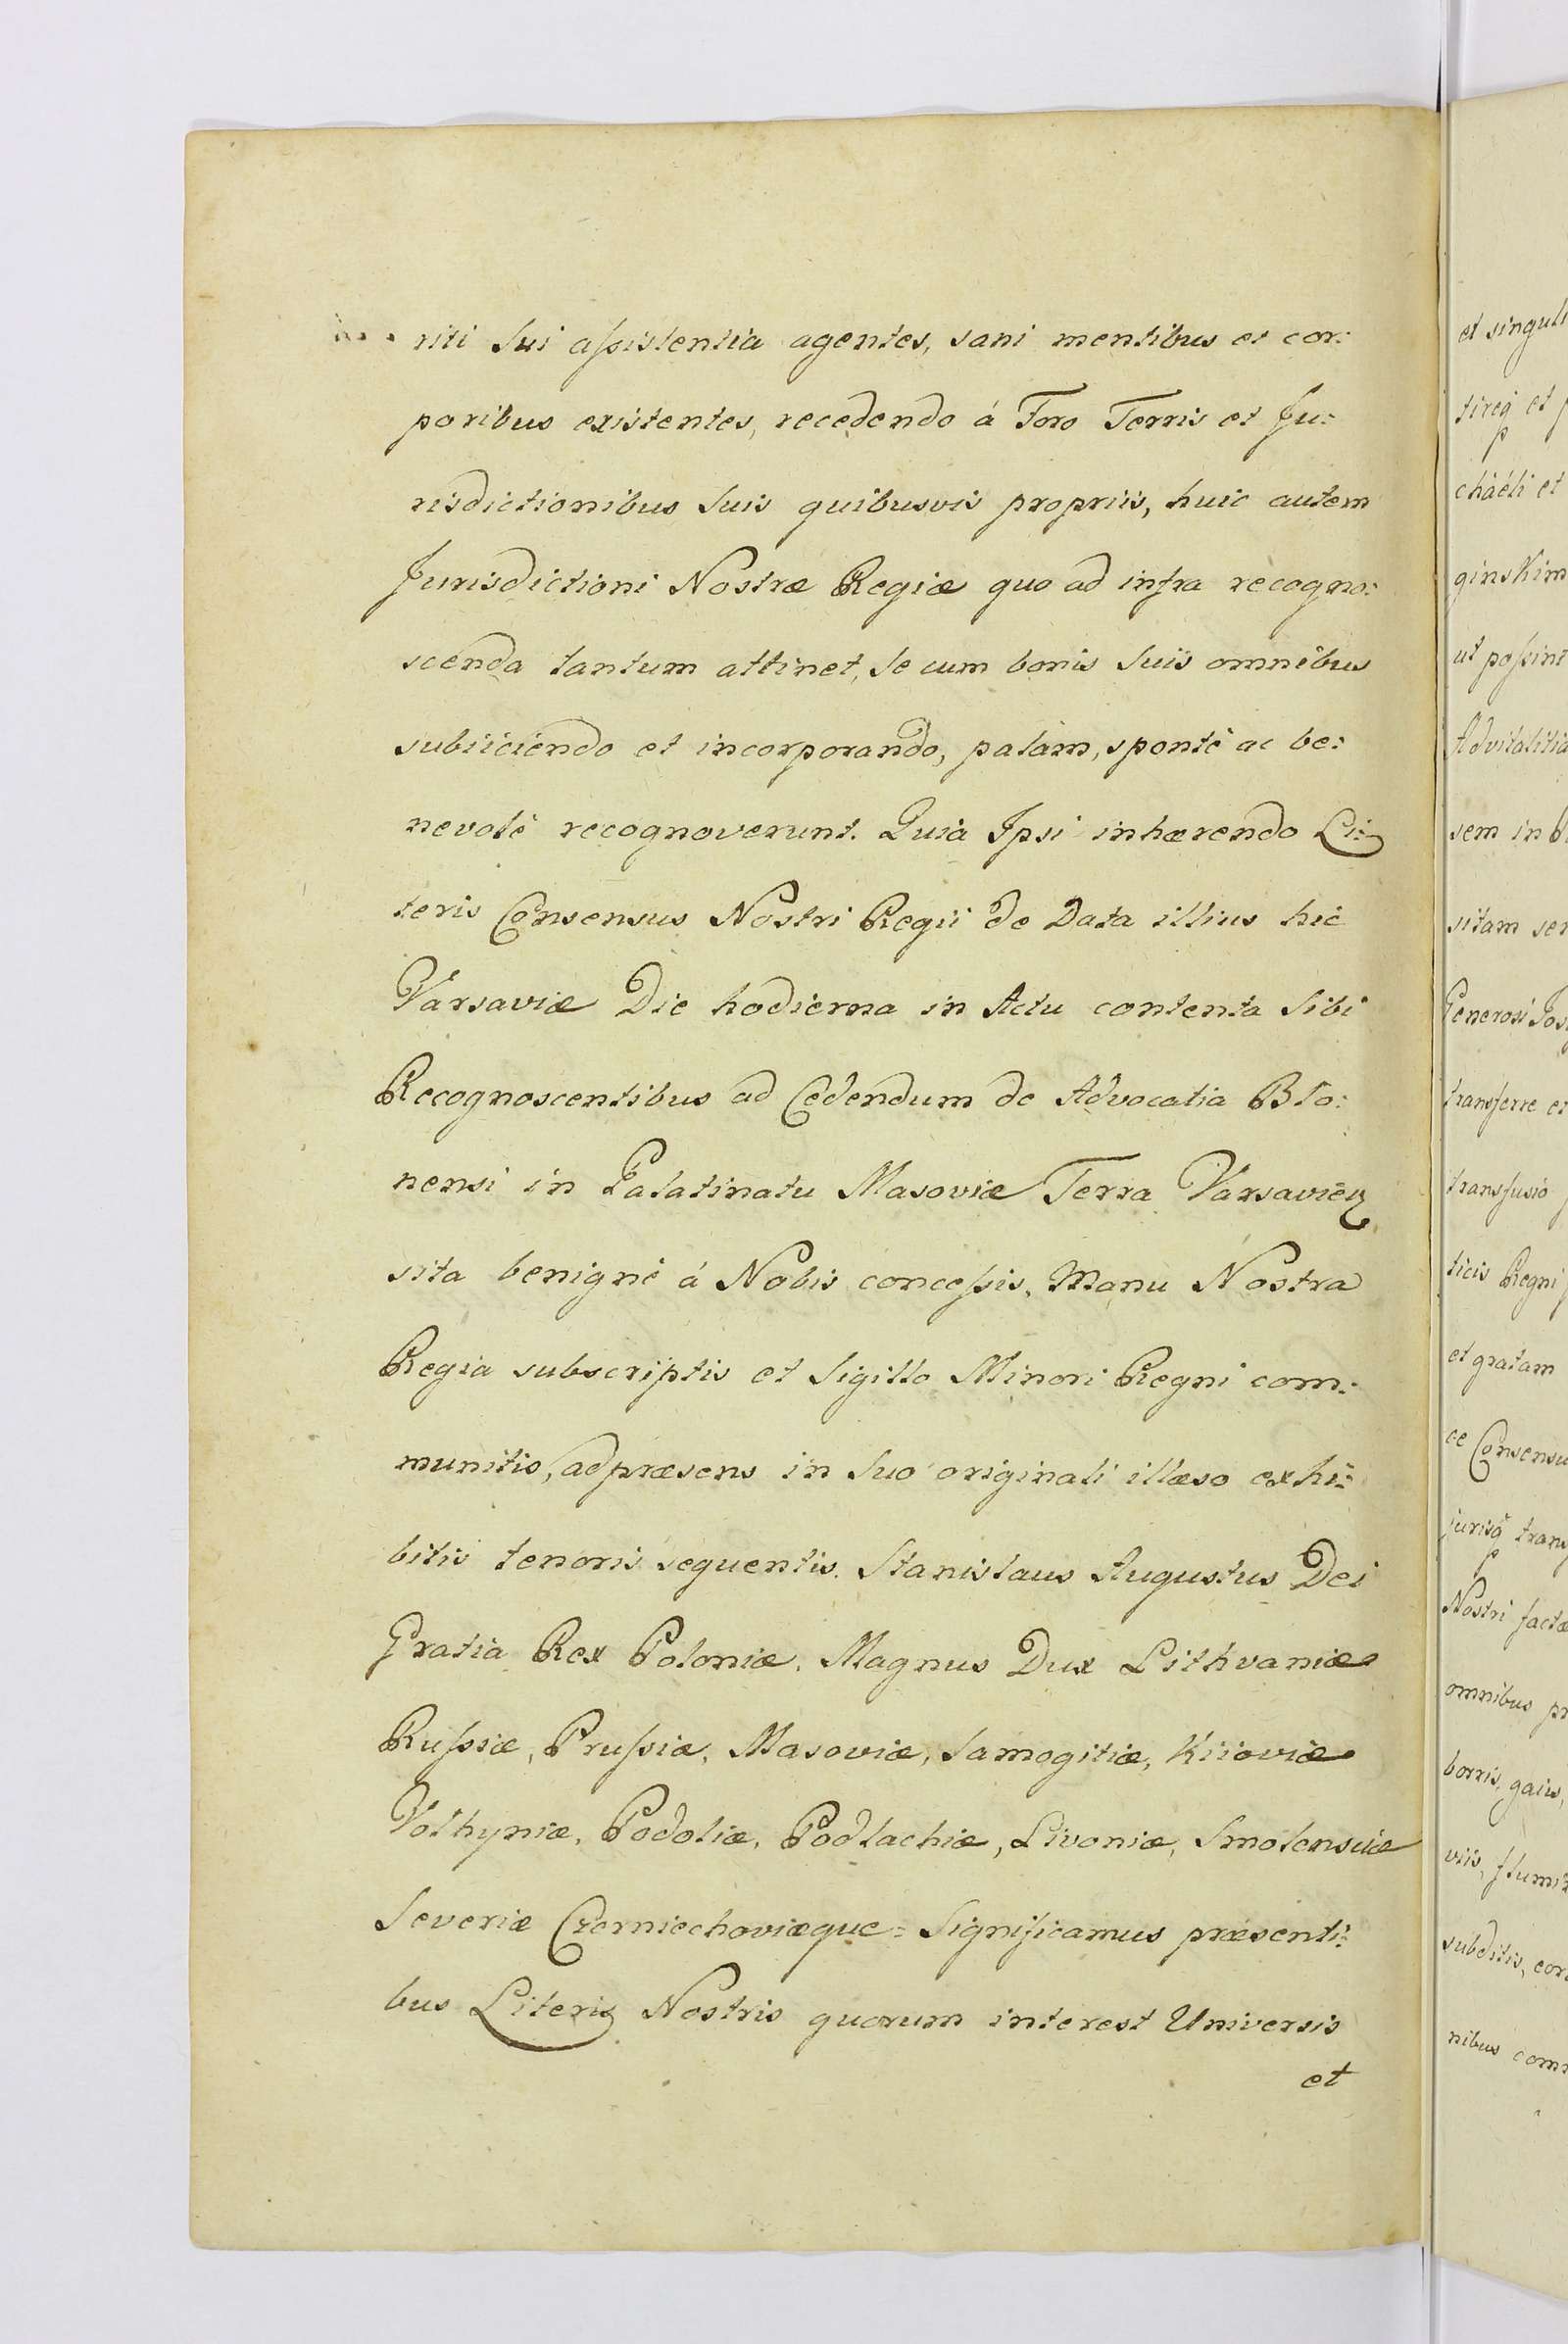 riti Sui assistentia agentes, sani mentibus et cor:
poribus existentes, recedendo á Foro Terris et Ju:
risdictionibus Suis quibusvis propriis, huic autem
Jurisdictioni Nostræ Regiæ quo ad infra recogno:
scenda tantum attinet, Se cum bonis Suis omnibus
subiiciendo et incorporando, palàm, spontè ac be:
nevolè recognoverunt. Quia Ipsi inhærendo Li:
teris Consensus Nostri Regii de Data illius hic
Varsaviæ Die hodierna in Actu contenta Sibi
Recognoscentibus ad Cedendum de Advocatia Blo:
nensi in Palatinatu Masoviæ Terra Varsavien
sita benignè á Nobis concessis, Manu Nostra
Regia subscriptis et Sigillo Minori Regni com:
munitis, ad præsens in Suo originali illæso exhi:
bitis tenoris sequentis. Stanislaus Augustus Dei
Gratia Rex Poloniæ, Magnus Dux Lithvaniæ
Russiæ, Prussiæ, Masoviæ, Samogitiæ, Kiioviæ
Volhyniæ, Podoliæ, Podlachiæ, Livoniæ, Smolensciæ
Severiæ Czerniechoviæque = Significamus præsenti:
bus Literis Nostris quorum interest Universis
et
et singuli
chaëli et
ginskim
ut possint
Advitalitia
sem in B
sitam ser
Generosi Jos
transferre et
transfusio
ticis Regni
et gratam
ce Consensu
jurisq trans
Nostri factæ
omnibus pr
borris, gais,
viis, flumi
subditis, cor
nibus com